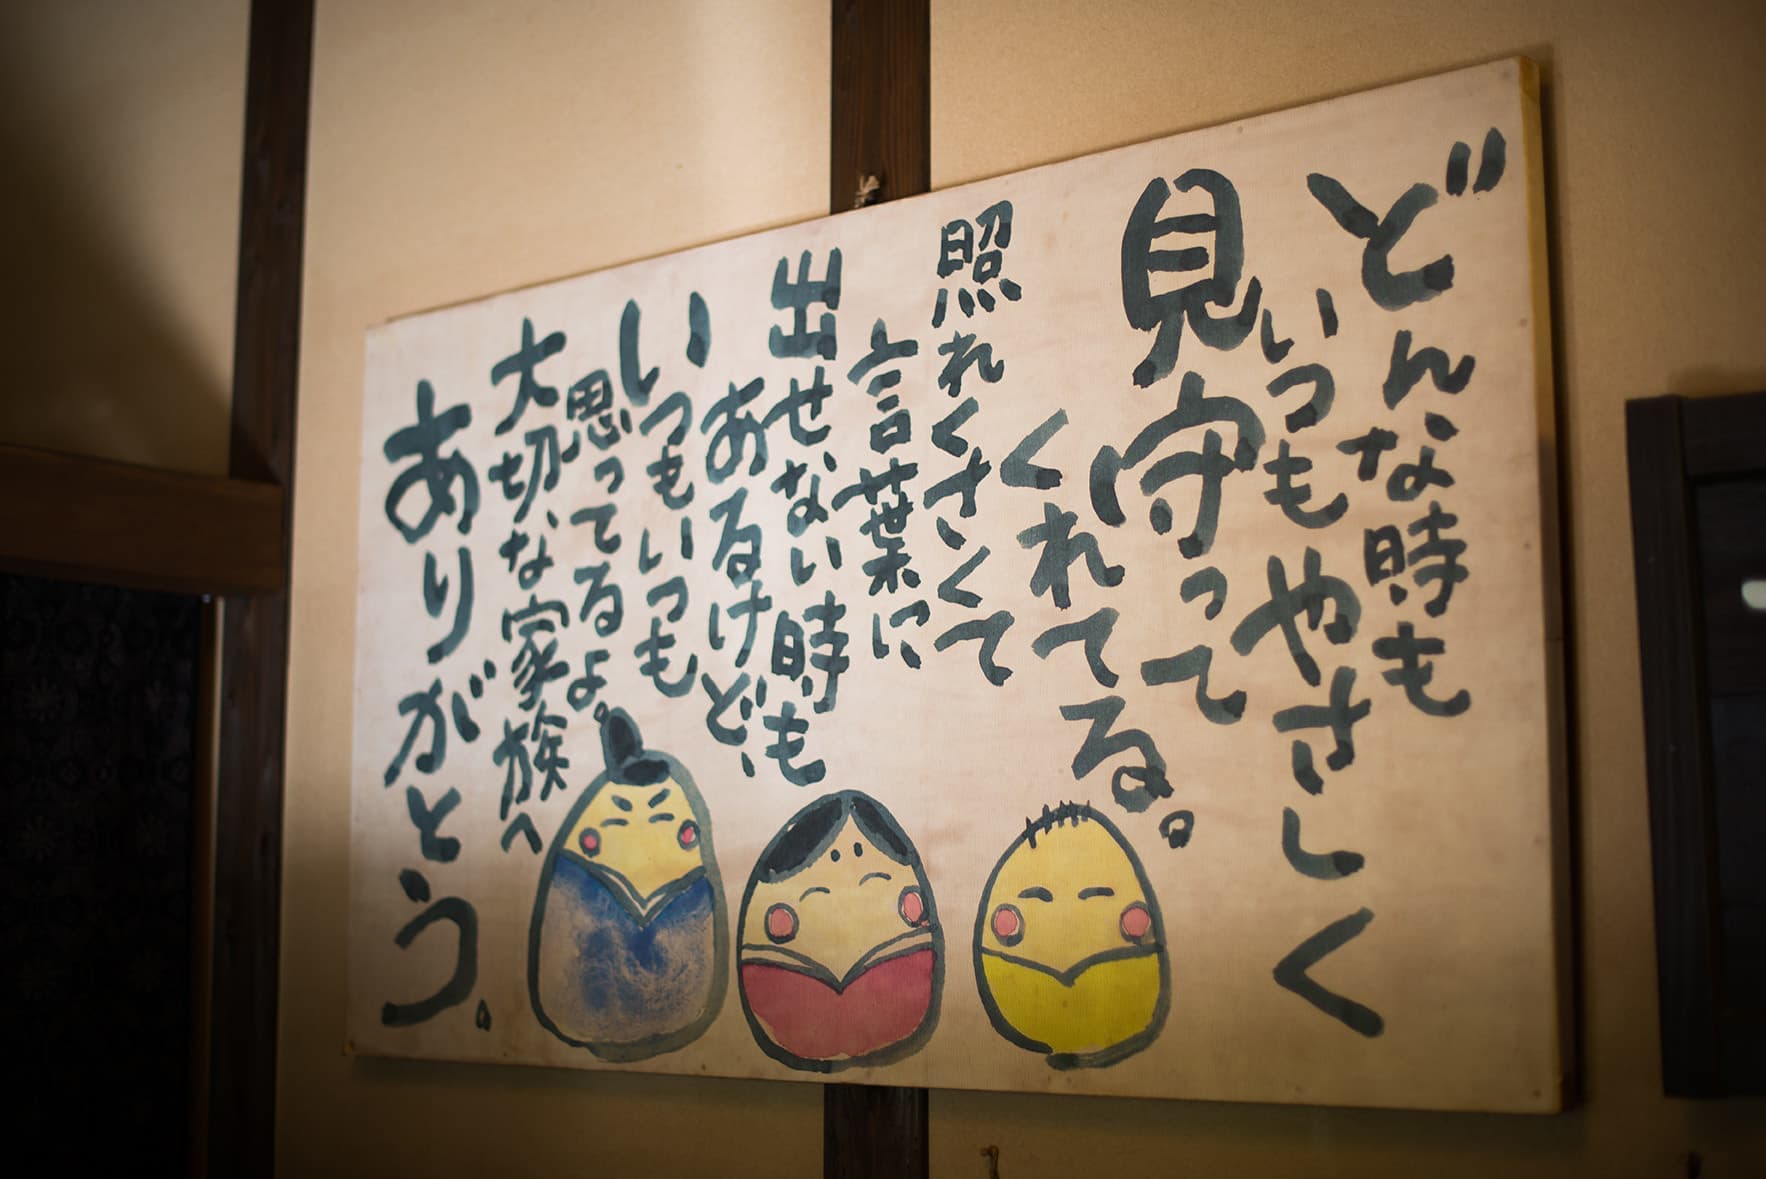 どんな時も
いつもやさしく
見守って
くれてる。
照れくさくて
言葉に
出せない時も
あるけど、
いつもいつも
思ってるよ。
大切な家族へ
ありがとう。